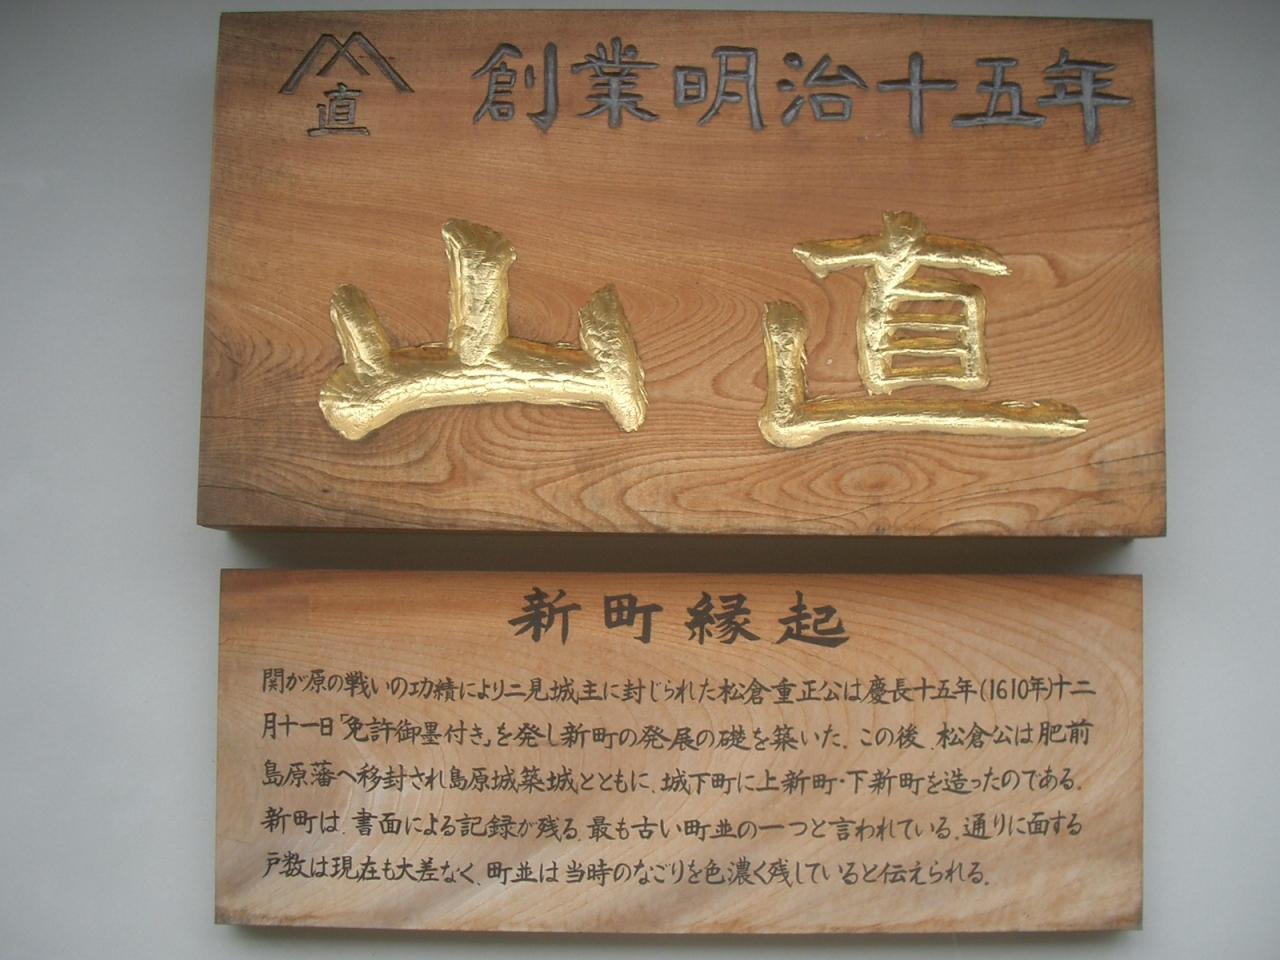 直 創業明治十五年
山直
新町縁起
関が原の戦いの功績により二見城主に封じられた松倉重正公は慶長十五年(1610年)十二
月十一日「免許御墨付き」を発し新町の発展の礎を築いた。この後、松倉公は肥前
島原藩へ移封され島原城築城とともに、城下町に上新町・下新町を造ったのである。
新町は、書面による記録が残る、最も古い町並の一つと言われている。通りに面する
戸数は現在も大差なく、町並は当時のなごりを色濃く残していると伝えられる。